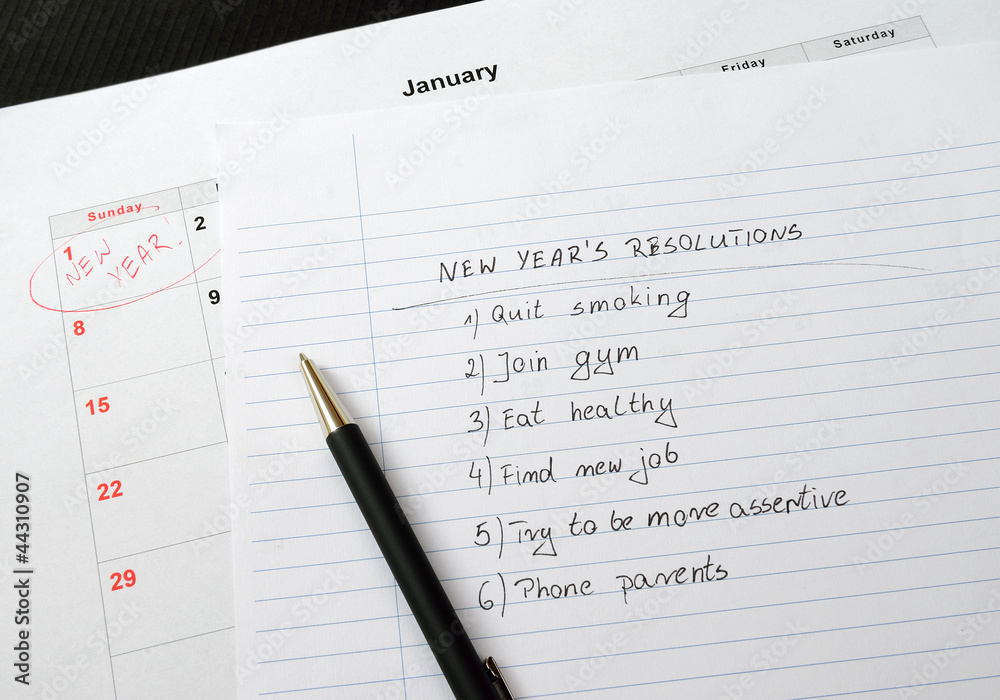 January
Friday
Saturday
Sunday
1
2
NEW
YEAR!
8
9
15
22
29
NEW YEAR'S RESOLUTIONS
1) Quit smoking
2) Join gym
3) Eat healthy
4) Find new job
5) Try to be more assertive
6) Phone parents
Adobe Stock | #44310907